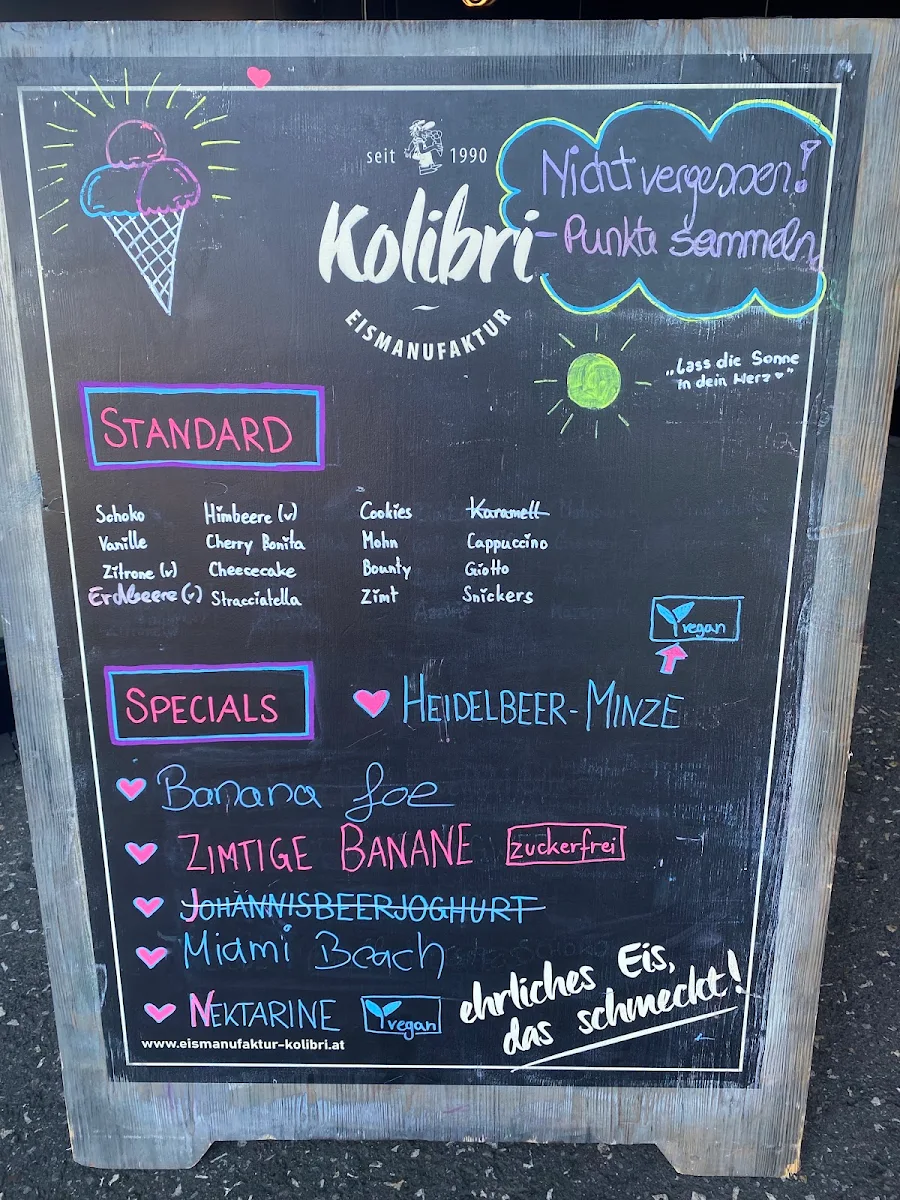 seit 1990
Kolibri
EISMANUFAKTUR
Nicht vergessen!
- Punkte sammeln
„Lass die Sonne
in dein Herz ♥"
STANDARD
Schoko Himbeere (v) Cookies Karamell
Vanille Cherry Bonita Mohn Cappuccino
Zitrone (v) Cheesecake Bounty Giotto
Erdbeere (v) Stracciatella Zimt Snickers
vegan
SPECIALS ♥ HEIDELBEER-MINZE
♥ Banana Joe
♥ ZIMTIGE BANANE zuckerfrei
♥ JOHANNISBEERJOGHURT
♥ Miami Beach
♥ NEKTARINE vegan
ehrliches Eis,
das schmeckt!
www.eismanufaktur-kolibri.at